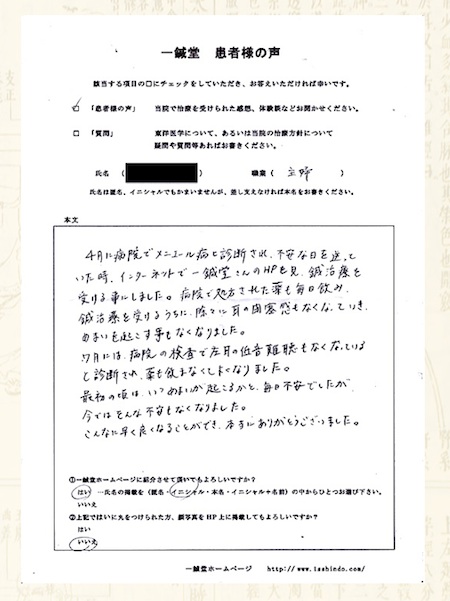 一鍼堂 患者様の声
該当する項目の□にチェックをしていただき、お答えいただければ幸いです。
☑ 「患者様の声」 当院で治療を受けられた感想、体験談などお聞かせください。
□ 「質問」 東洋医学について、あるいは当院の治療方針について
疑問や質問等あればお書きください。
氏名 ( ) 職業 ( 主婦 )
氏名は匿名、イニシャルでもかまいませんが、差し支えなければ本名をお書きください。
本文
4月に病院でメニエール病と診断され、不安な日を送って
いた時、インターネットで一鍼堂さんのHPを見、鍼治療を
受ける事にしました。病院で処方された薬も毎日飲み、
鍼治療を受けるうちに、除々に耳の閉塞感もなくなっていき、
めまいを起こす事もなくなりました。
7月には、病院の検査で左耳の低音難聴もなくなっている
と診断され、薬も飲まなくてよくなりました。
最初の頃は、いつめまいが起こるかと、毎日不安でしたが、
今ではそんな不安もなくなりました。
こんなに早く良くなることができ、本当にありがとうございました。
①一鍼堂ホームページに紹介させて頂いてもよろしいですか?
はい →氏名の掲載を(匿名・イニシャル・本名・イニシャル+名前)の中からひとつお選び下さい。
いいえ
②上記ではいに丸をつけられた方、顔写真をHP上に掲載してもよろしいですか?
はい
いいえ
一鍼堂ホームページ http://www.isshindo.com/